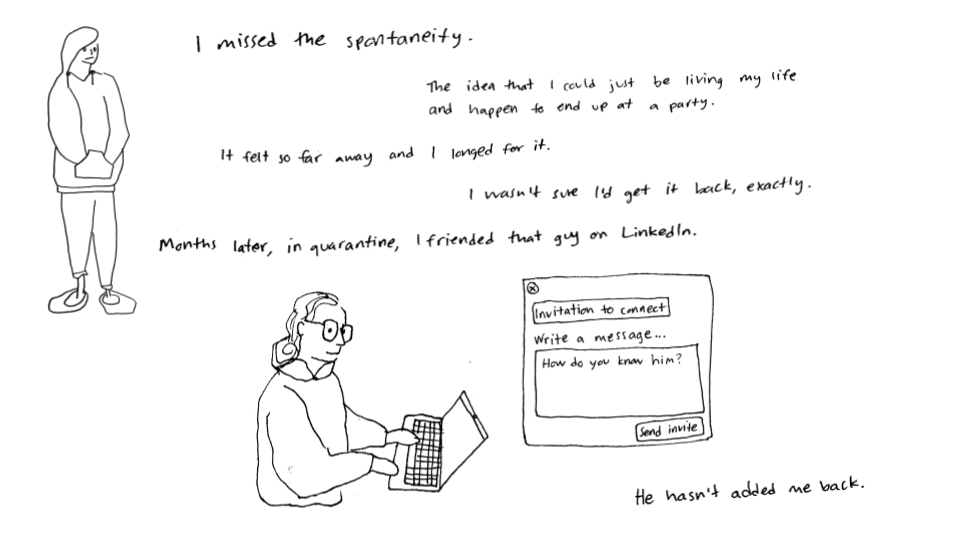 I missed the spontaneity.
The idea that I could just be living my life
and happen to end up at a party.
It felt so far away and I longed for it.
I wasn't sure I'd get it back, exactly.
Months later, in quarantine, I friended that guy on LinkedIn.
Invitation to connect
Write a message...
How do you know him?
Send invite
He hasn't added me back.